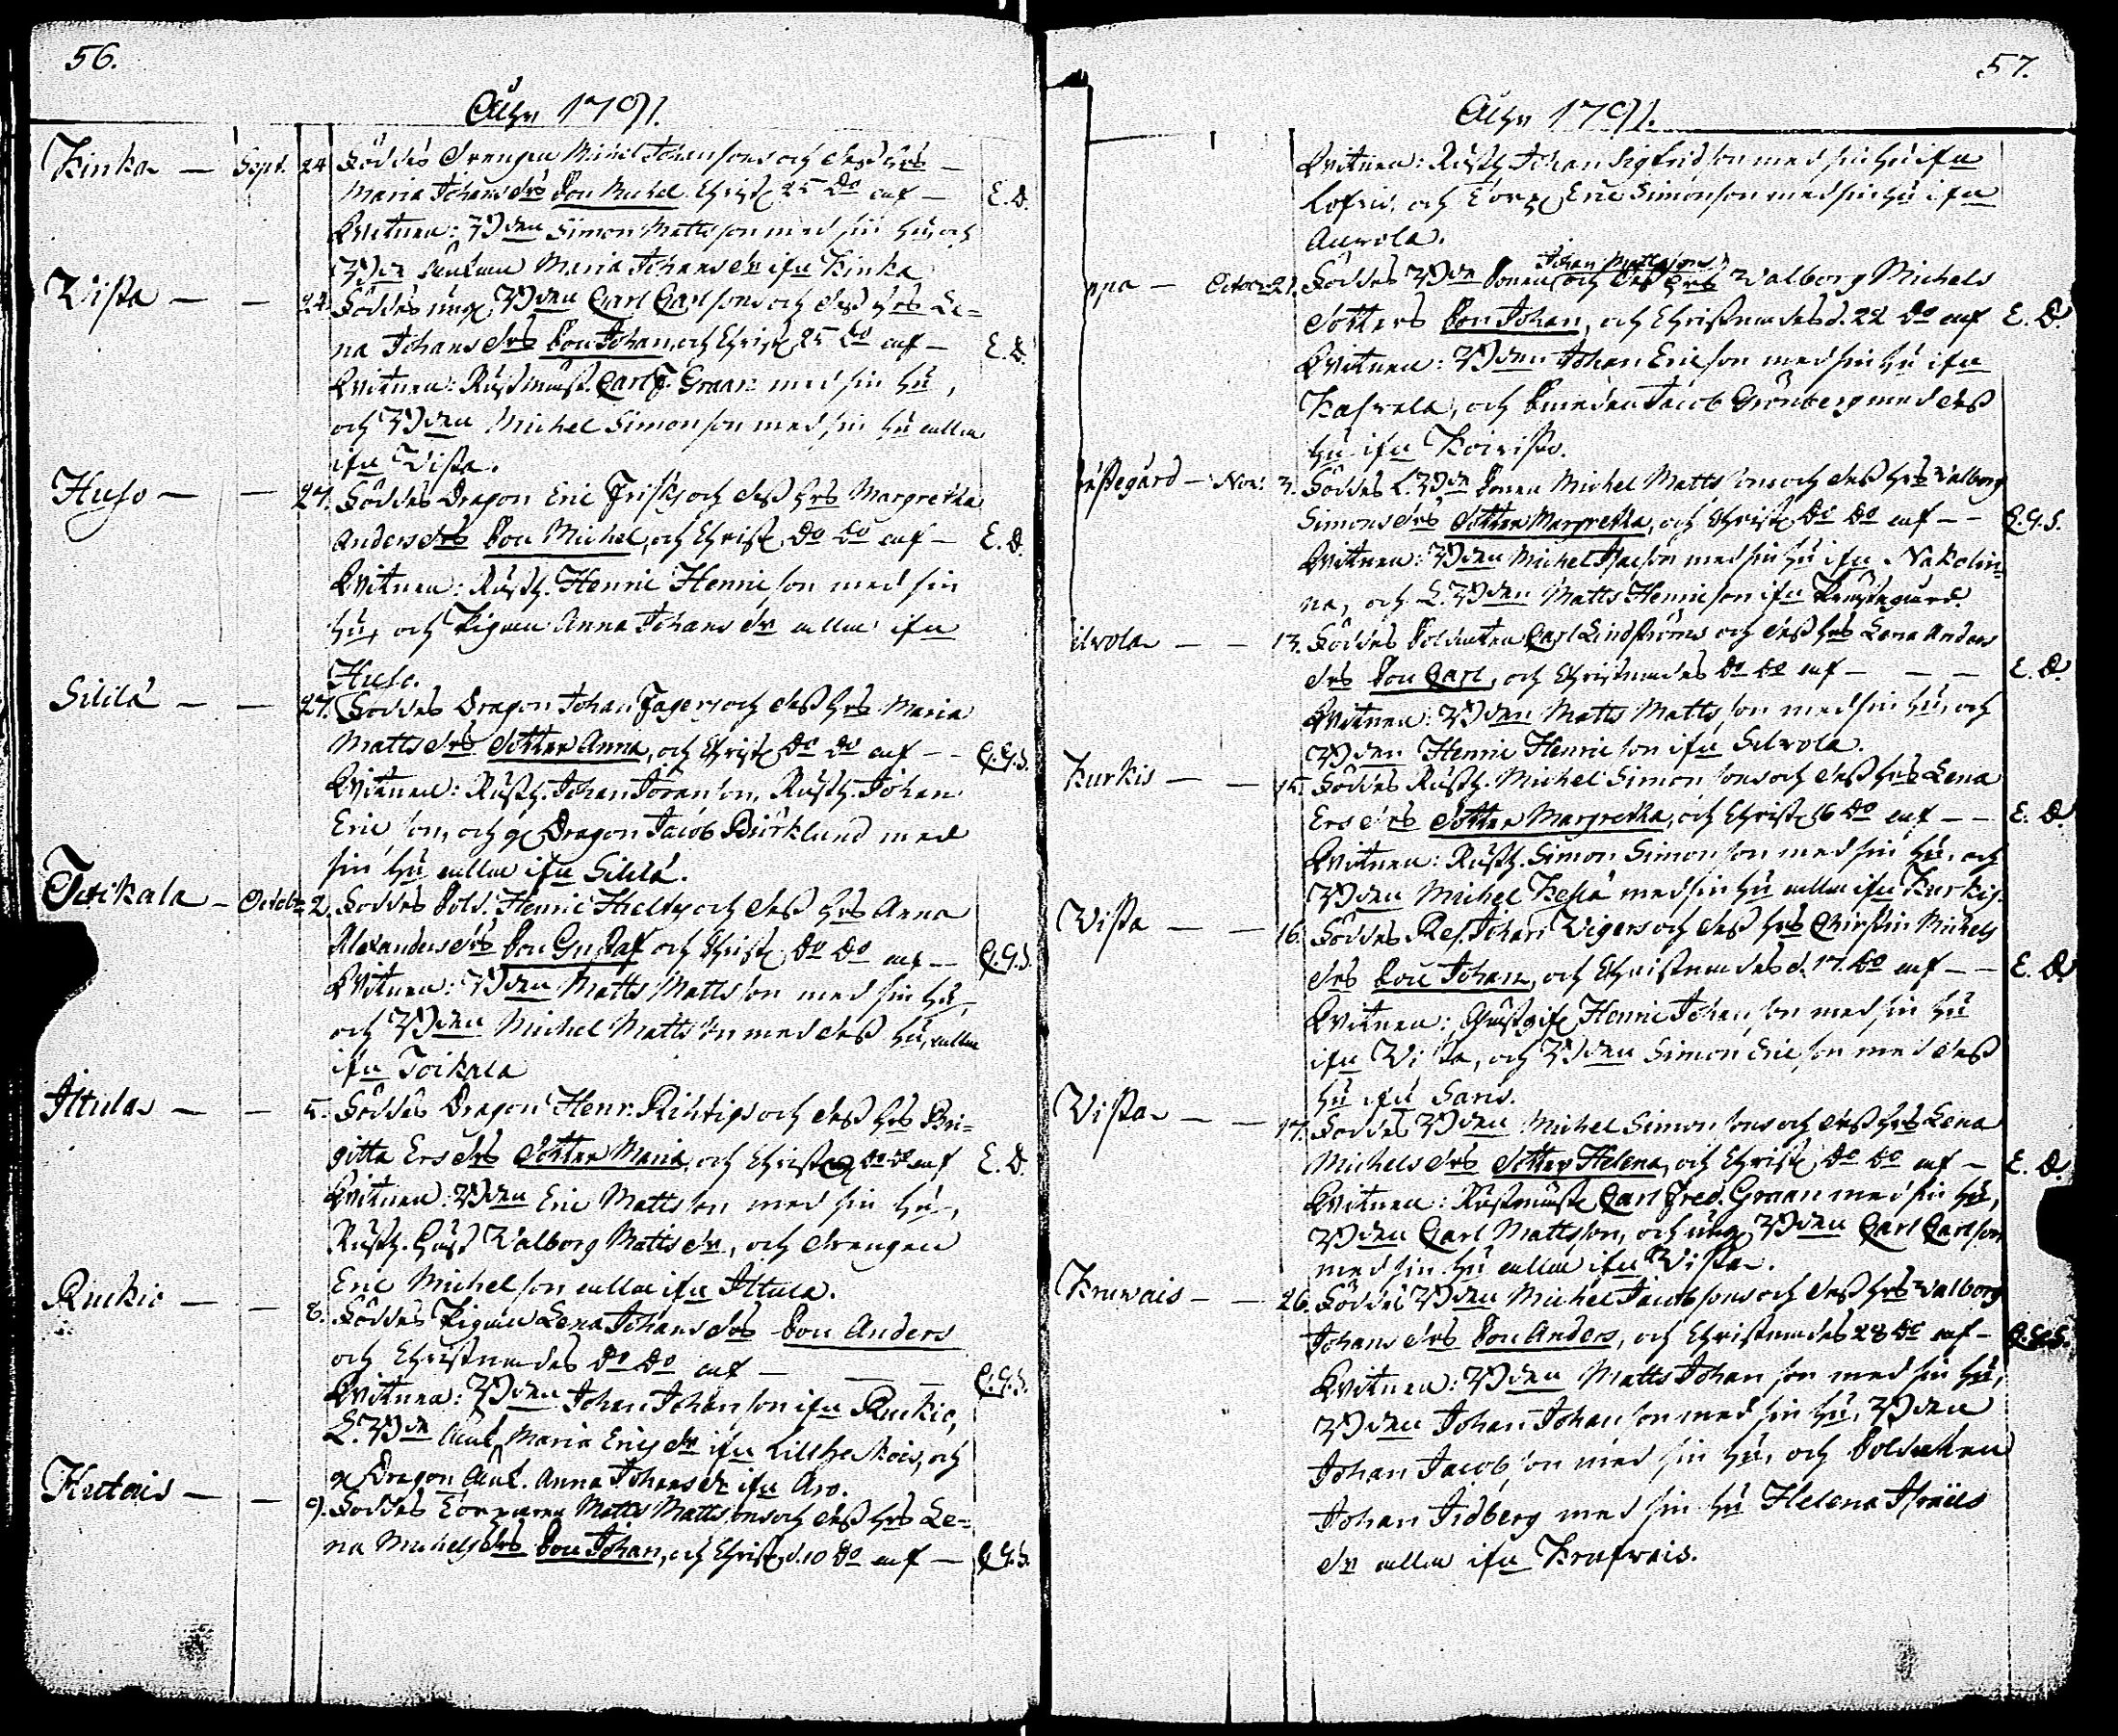 56.
Åhr 1791.
Kinka — Sept. 24 Föddes Drengen Michel Johanssons och dess hus
Maria Johans drs Son Michel Christ. 25 do af — E. D.
Wittnen: Bonden Simon Mattsson med sin hu och
Maria Johans dr ifrn Kinka
Vista — — 24. Föddes ung. Bonden Carl Carlssons och dess hus Le=
na Johans drs Son Johan, och Christ. 25 do af — E. D.
Wittnen: Rustmäst. Carl F. Graan med sin hu,
och Bonden Michel Simonsson med sin hu alla
ifrn Vista.
Huso — — 27. Föddes Dragon Eric Frisks och dess hus Margretha
Anders drs Son Michel, och Christ. do do af — E. D.
Wittnen: Rusth. Henric Henricsson med sin
hu, och Pigan Anna Johans dr alla ifrn
Huso.
Sililä — — 27. Föddes Dragon Johan Fagers och dess hus Maria
Matts drs Dotter Anna, och Christ. do do af — —
Wittnen: Rusth. Johan Göransson, Rusth. Johan
Ericsson, och Dragon Jacob Björklund med
sin hu alla ifrn Sililä.
Toikala — Octobr. 2. Föddes Sold. Henric Hielts och dess hus Anna
Alexanders drs Son Gustaf och Christ. do do af —
Wittnen: Bonden Matts Mattsson med sin hu,
och Bonden Michel Mattsson med dess hu, alla
ifrn Toikala
Ittula — — 5. Föddes Dragon Henr. Rihtigs och dess hus Bri=
gitta Ers drs Dotter Maria, och Christ. do do af E. D.
Wittnen: Bonden Eric Mattsson med sin hu,
Rusth. Hust. Walborg Matts dr, och Drengen
Eric Michelsson alla ifrn Ittula.
Ruckio — — 8. Föddes Pigan Lena Johans drs Son Anders
och Christnades do do af — — —
Wittnen: Bonden Johan Johansson ifrn Ruckio,
Maria Erics dr ifrn Lillheikois, och
Dragon Anna Johans dr ifrn Aro.
Hutois — — 9. Föddes Torparen Matts Mattssons och dess hus Le=
na Michels drs Son Johan, och Christ. d. 10 do af —
57.
Åhr 1791.
Wittnen: Rusth. Johan Sigfridsson med sin hu ifrn
och Torp. Eric Simonsson med sin hu ifrn
Auvola.
ppa — Octobr. 21. Föddes Bonden Johan Mattssons och dess hus Walborg Michels
dotters Son Johan, och Christnades d. 22 do af E. D.
Wittnen: Bonden Johan Ericsson med sin hu ifrn
och Smeden Jacob Grönberg med dess
hu ifrn Koivisto.
rästegård — Nov: 3. Föddes L. Bonden Michel Mattssons och dess hus Walborg
Simons drs Dotter Margretha, och Christ. do do af — —
Wittnen: Bonden Michel med sin hu ifrn Nakolin=
na, och L. Bonden Matts Henricsson ifrn Prästegård.
ilvola — — 13. Föddes Soldaten Carl Lindströms och dess hus Lena Anders
drs Son Carl, och Christnades do do af — — — E. D.
Wittnen: Bonden Matts Mattsson med sin hu, och
Bonden Henric Henricsson ifrn Silvola.
Kurkis — — 15. Föddes Rusth. Michel Simonssons och dess hus Lena
Ers drs Dotter Margretha, och Christ. 16 do af — — E. D.
Wittnen: Rusth. Simon Simonsson med sin hu, och
Bonden Michel med sin hu alla ifrn Kurkis.
Vista — — 16. Föddes Ref. Johan Wigers och dess hus Christin Michels
drs Son Johan, och Christnades d. 17. do af — — E. D.
Wittnen: Gästgif. Henric Johansson med sin hu
ifrn Vista, och Bonden Simon Ericsson med dess
hu ifrn Saris.
Vista — — 17. Föddes Bonden Michel Simonssons och dess hus Lena
Michels drs Dotter Helena, och Christ. do do af — E. D.
Wittnen: Rustmäst. Carl Fred. Graan med sin hu,
Bonden Carl Mattsson, och ung. Bonden Carl Carlsson
med sin hu alla ifrn Vista.
Kruvais — — 26. Föddes Bonden Michel Jacobssons och dess hus Walborg
Johans drs Son Anders, och Christnades 28 do af —
Wittnen: Bonden Matts Johansson med sin hu,
Bonden Johan Johansson med sin hu, Bonden
Johan Jacobsson med sin hu, och Soldaten
Johan Lidberg med sin hu Helena Israels
dr alla ifrn Krufvais.